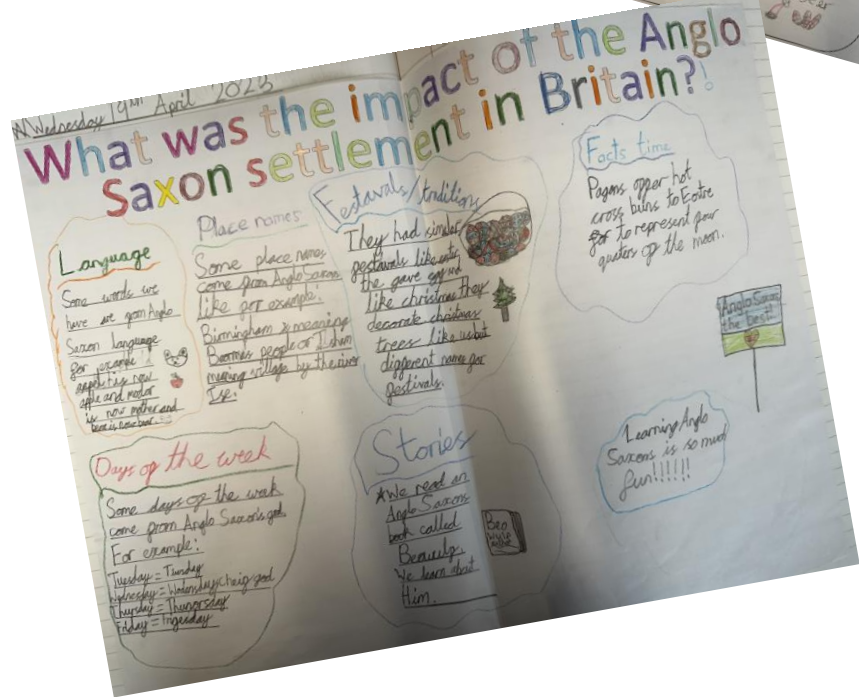 Wednesday 19th April 2023
What was the impact of the Anglo
Saxon settlement in Britain?!
Language
Some words we
have are from Anglo
Saxon language
for example
now
apple and modor
is now mother and
Place names
Some place names
come from Anglo Saxons
like for example:
Birmingham meaning
people or Isham
meaning village by the river
Ise.
Festavals/traditions
They had similar
festavals like
the gave egg
like christmas they
decorate christmas
trees like us but
different names for
festivals.
Facts time
Pagans offer hot
cross buns to Eotre
for to represent four
quaters of the moon.
Anglo Saxons
the best!
Days of the week
Some days of the week
come from Anglo Saxon's god
For example:
Tuesday = Tiwday
Wednesday = god
Thursday = Thunorsday
Friday =
Stories
We read an
Anglo Saxons
book called
We learn about
Him.
Learning Anglo
Saxons is so much
fun!!!!!!